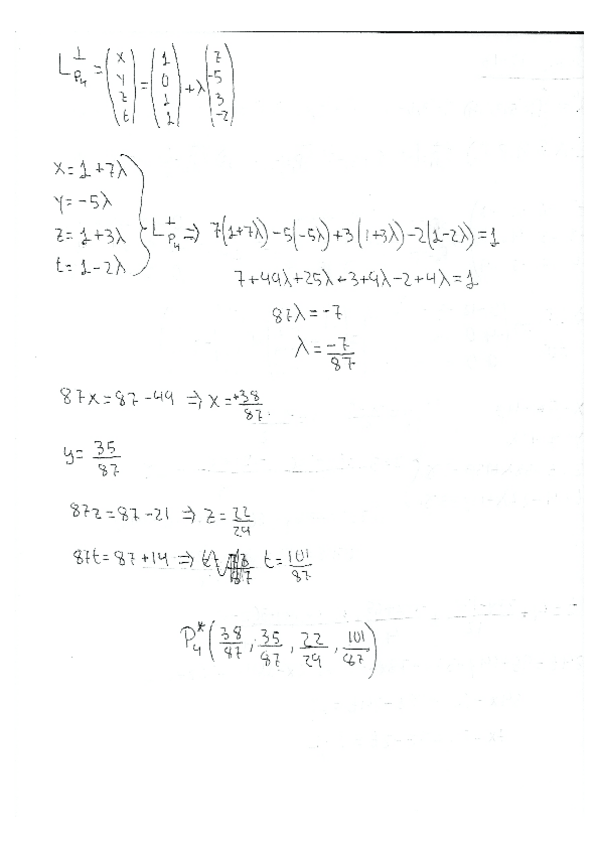 L⊥P₄ = (x y z t) = (1 0 1 1) + λ (7 -5 3 -2)
x = 1 + 7λ
y = -5λ
z = 1 + 3λ
t = 1 - 2λ
L⊥P₄ ⇒ 7(1+7λ) - 5(-5λ) + 3(1+3λ) - 2(1-2λ) = 1
7 + 49λ + 25λ + 3 + 9λ - 2 + 4λ = 1
87λ = -7
λ = -7/87
87x = 87 - 49 ⇒ x = +38/87
y = 35/87
87z = 87 - 21 ⇒ z = 22/29
87t = 87 + 14 ⇒ t = 101/87
P₄* (38/87, 35/87, 22/29, 101/87)